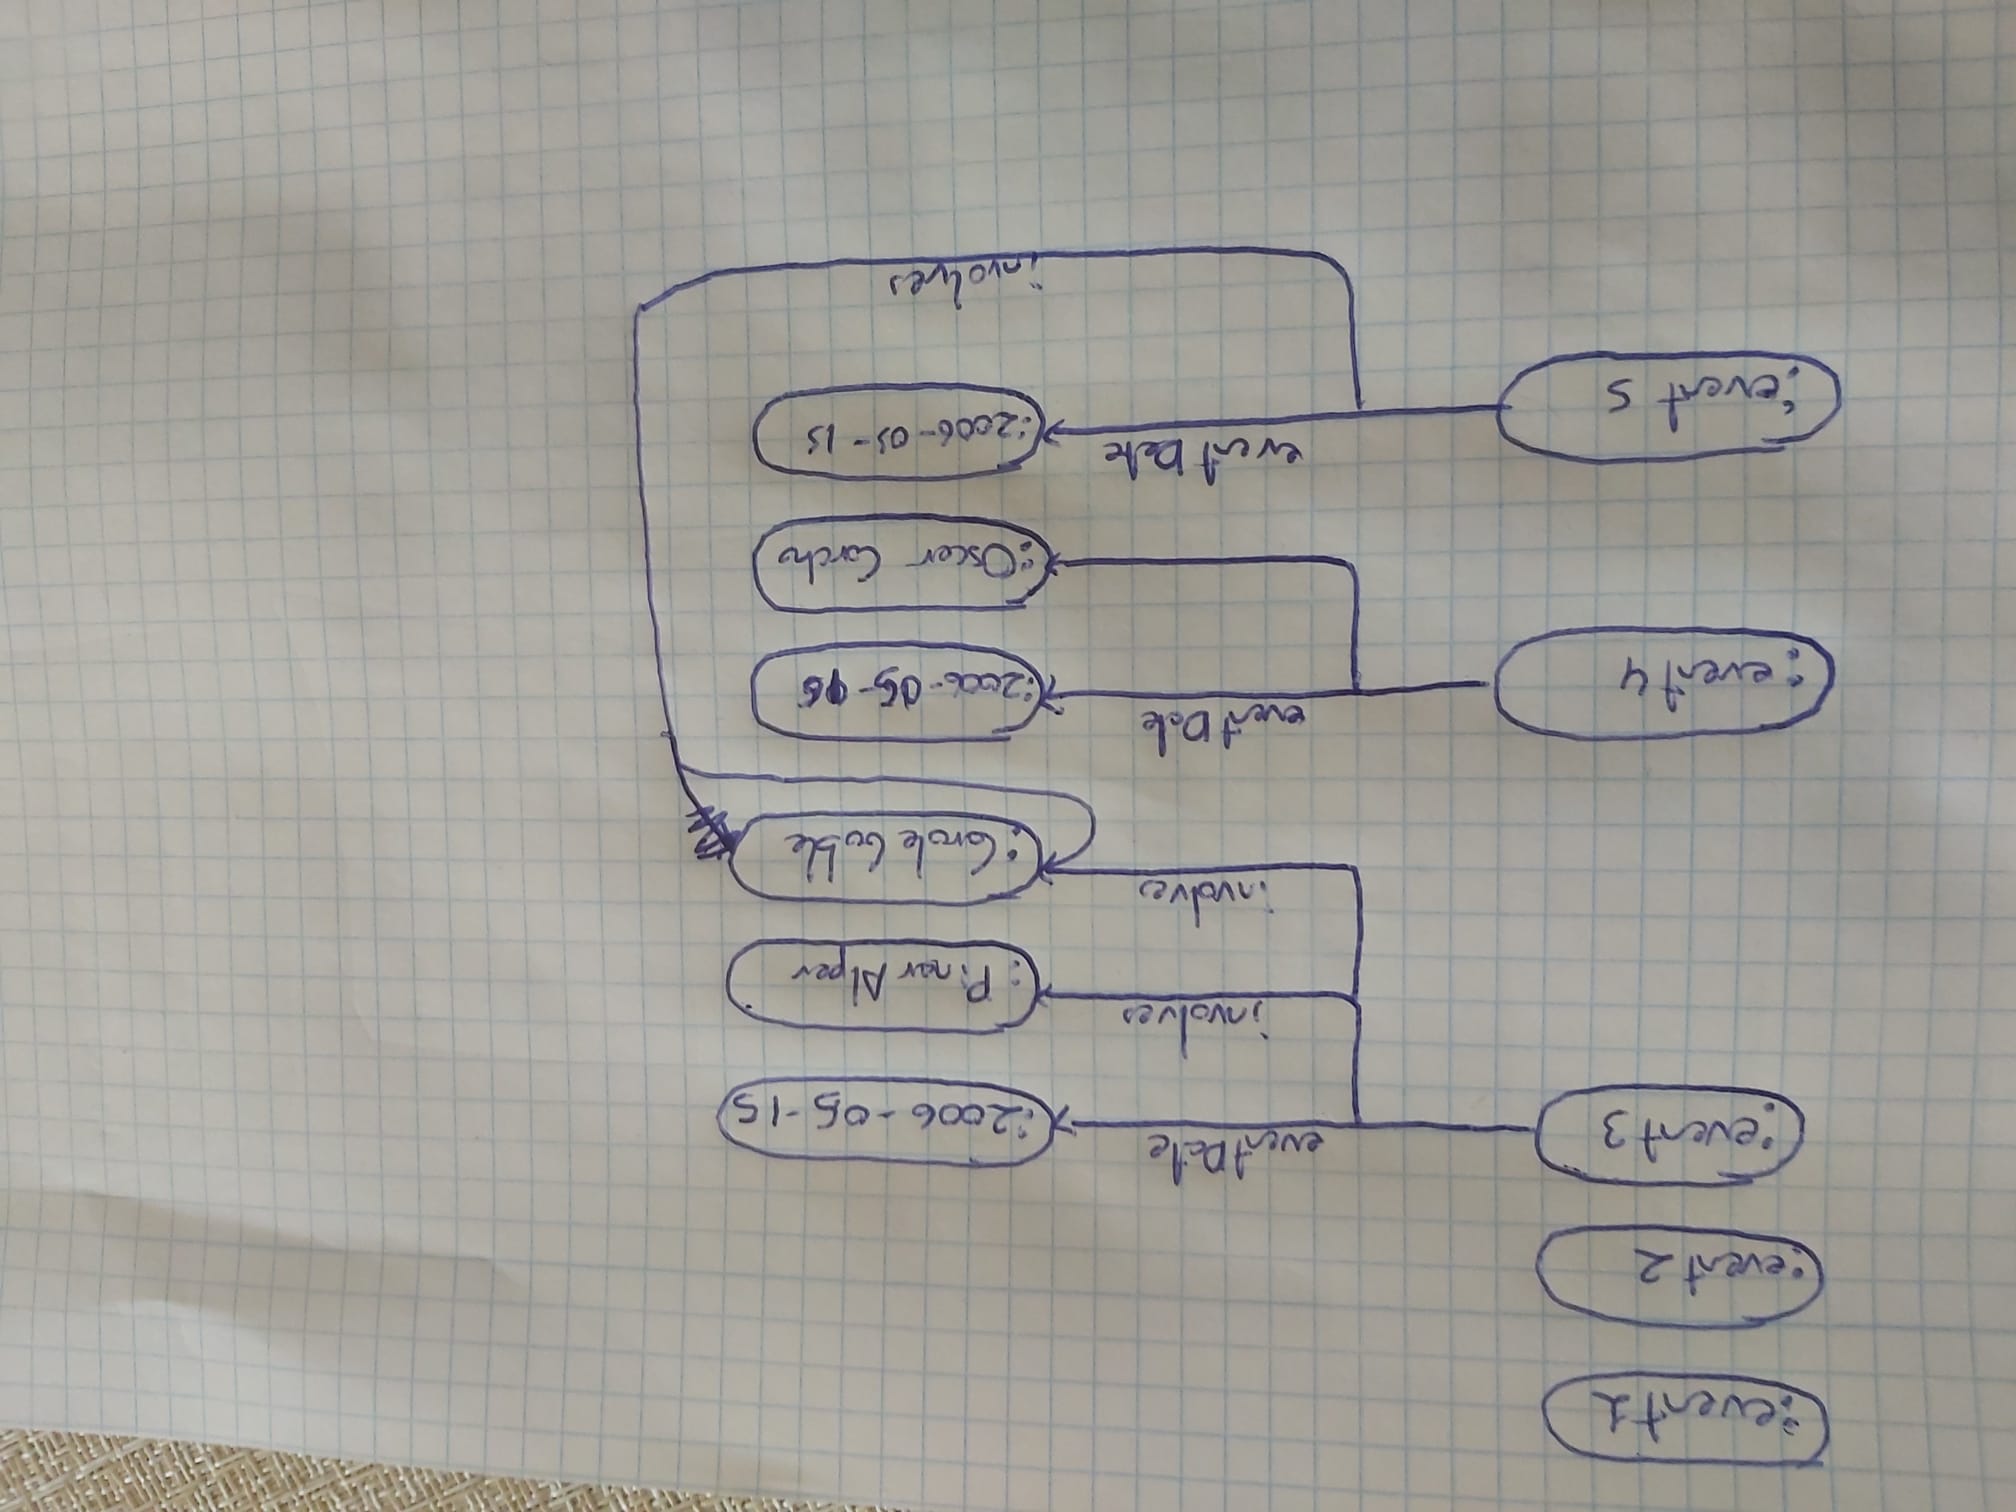 :event1
:event2
:event3
eventDate
:2006-05-15
involves
:Pinar Alper
involves
:Carole Goble
:event4
eventDate
:2006-05-
:Oscar Corcho
:event 5
eventDate
:2006-05-15
involves